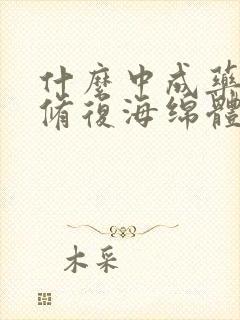 什麼中成藥
脩復海綿體
木采